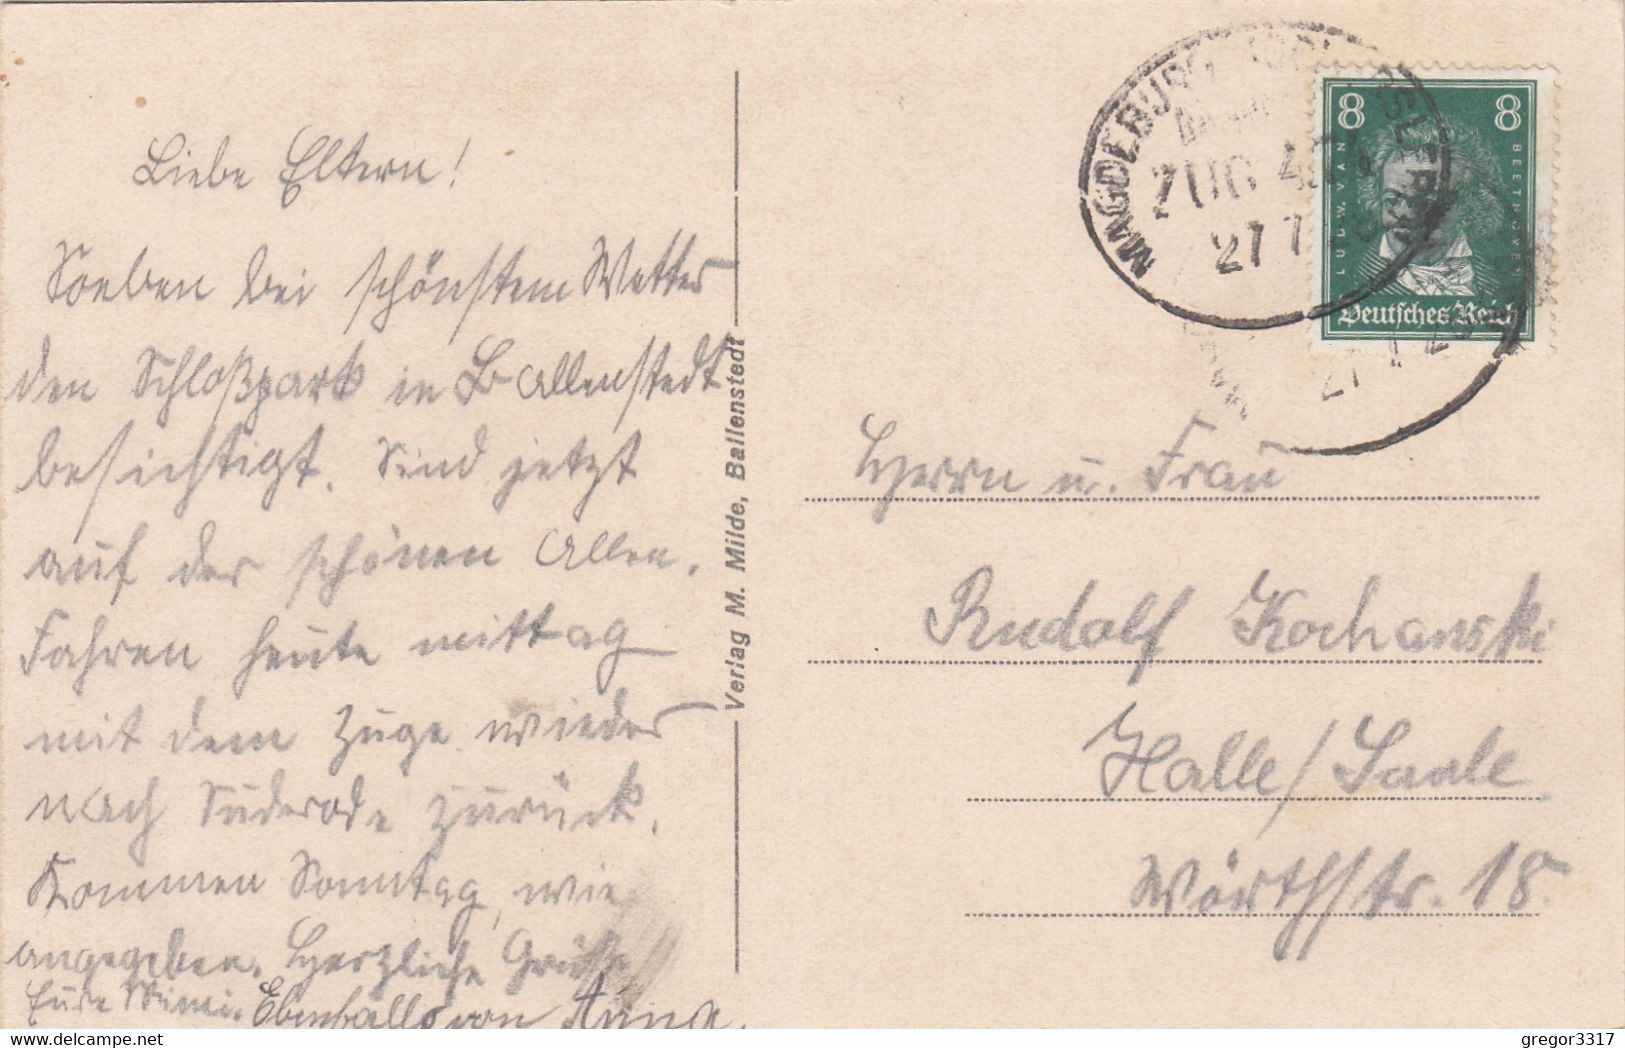 Liebe Eltern!
Soeben bei schönstem Wetter
den Schloßpark in Ballenstedt
besichtigt. Sind jetzt
auf der schönen Allee.
Fahren heute mittag
mit dem Zuge wieder
nach Suderode zurück.
Kommen Sonntag, wie
angegeben. Herzliche Grüße
Eure Mimi. Ebenfalls von Anna.
Verlag M. Milde, Ballenstedt
MAGDEBURG
ZUG
27 7
8 8
LUDW. VAN BEETHOVEN
Deutsches Reich
Herrn u. Frau
Rudolf Kochanski
Halle/Saale
Wörthstr. 18.
gregor3317